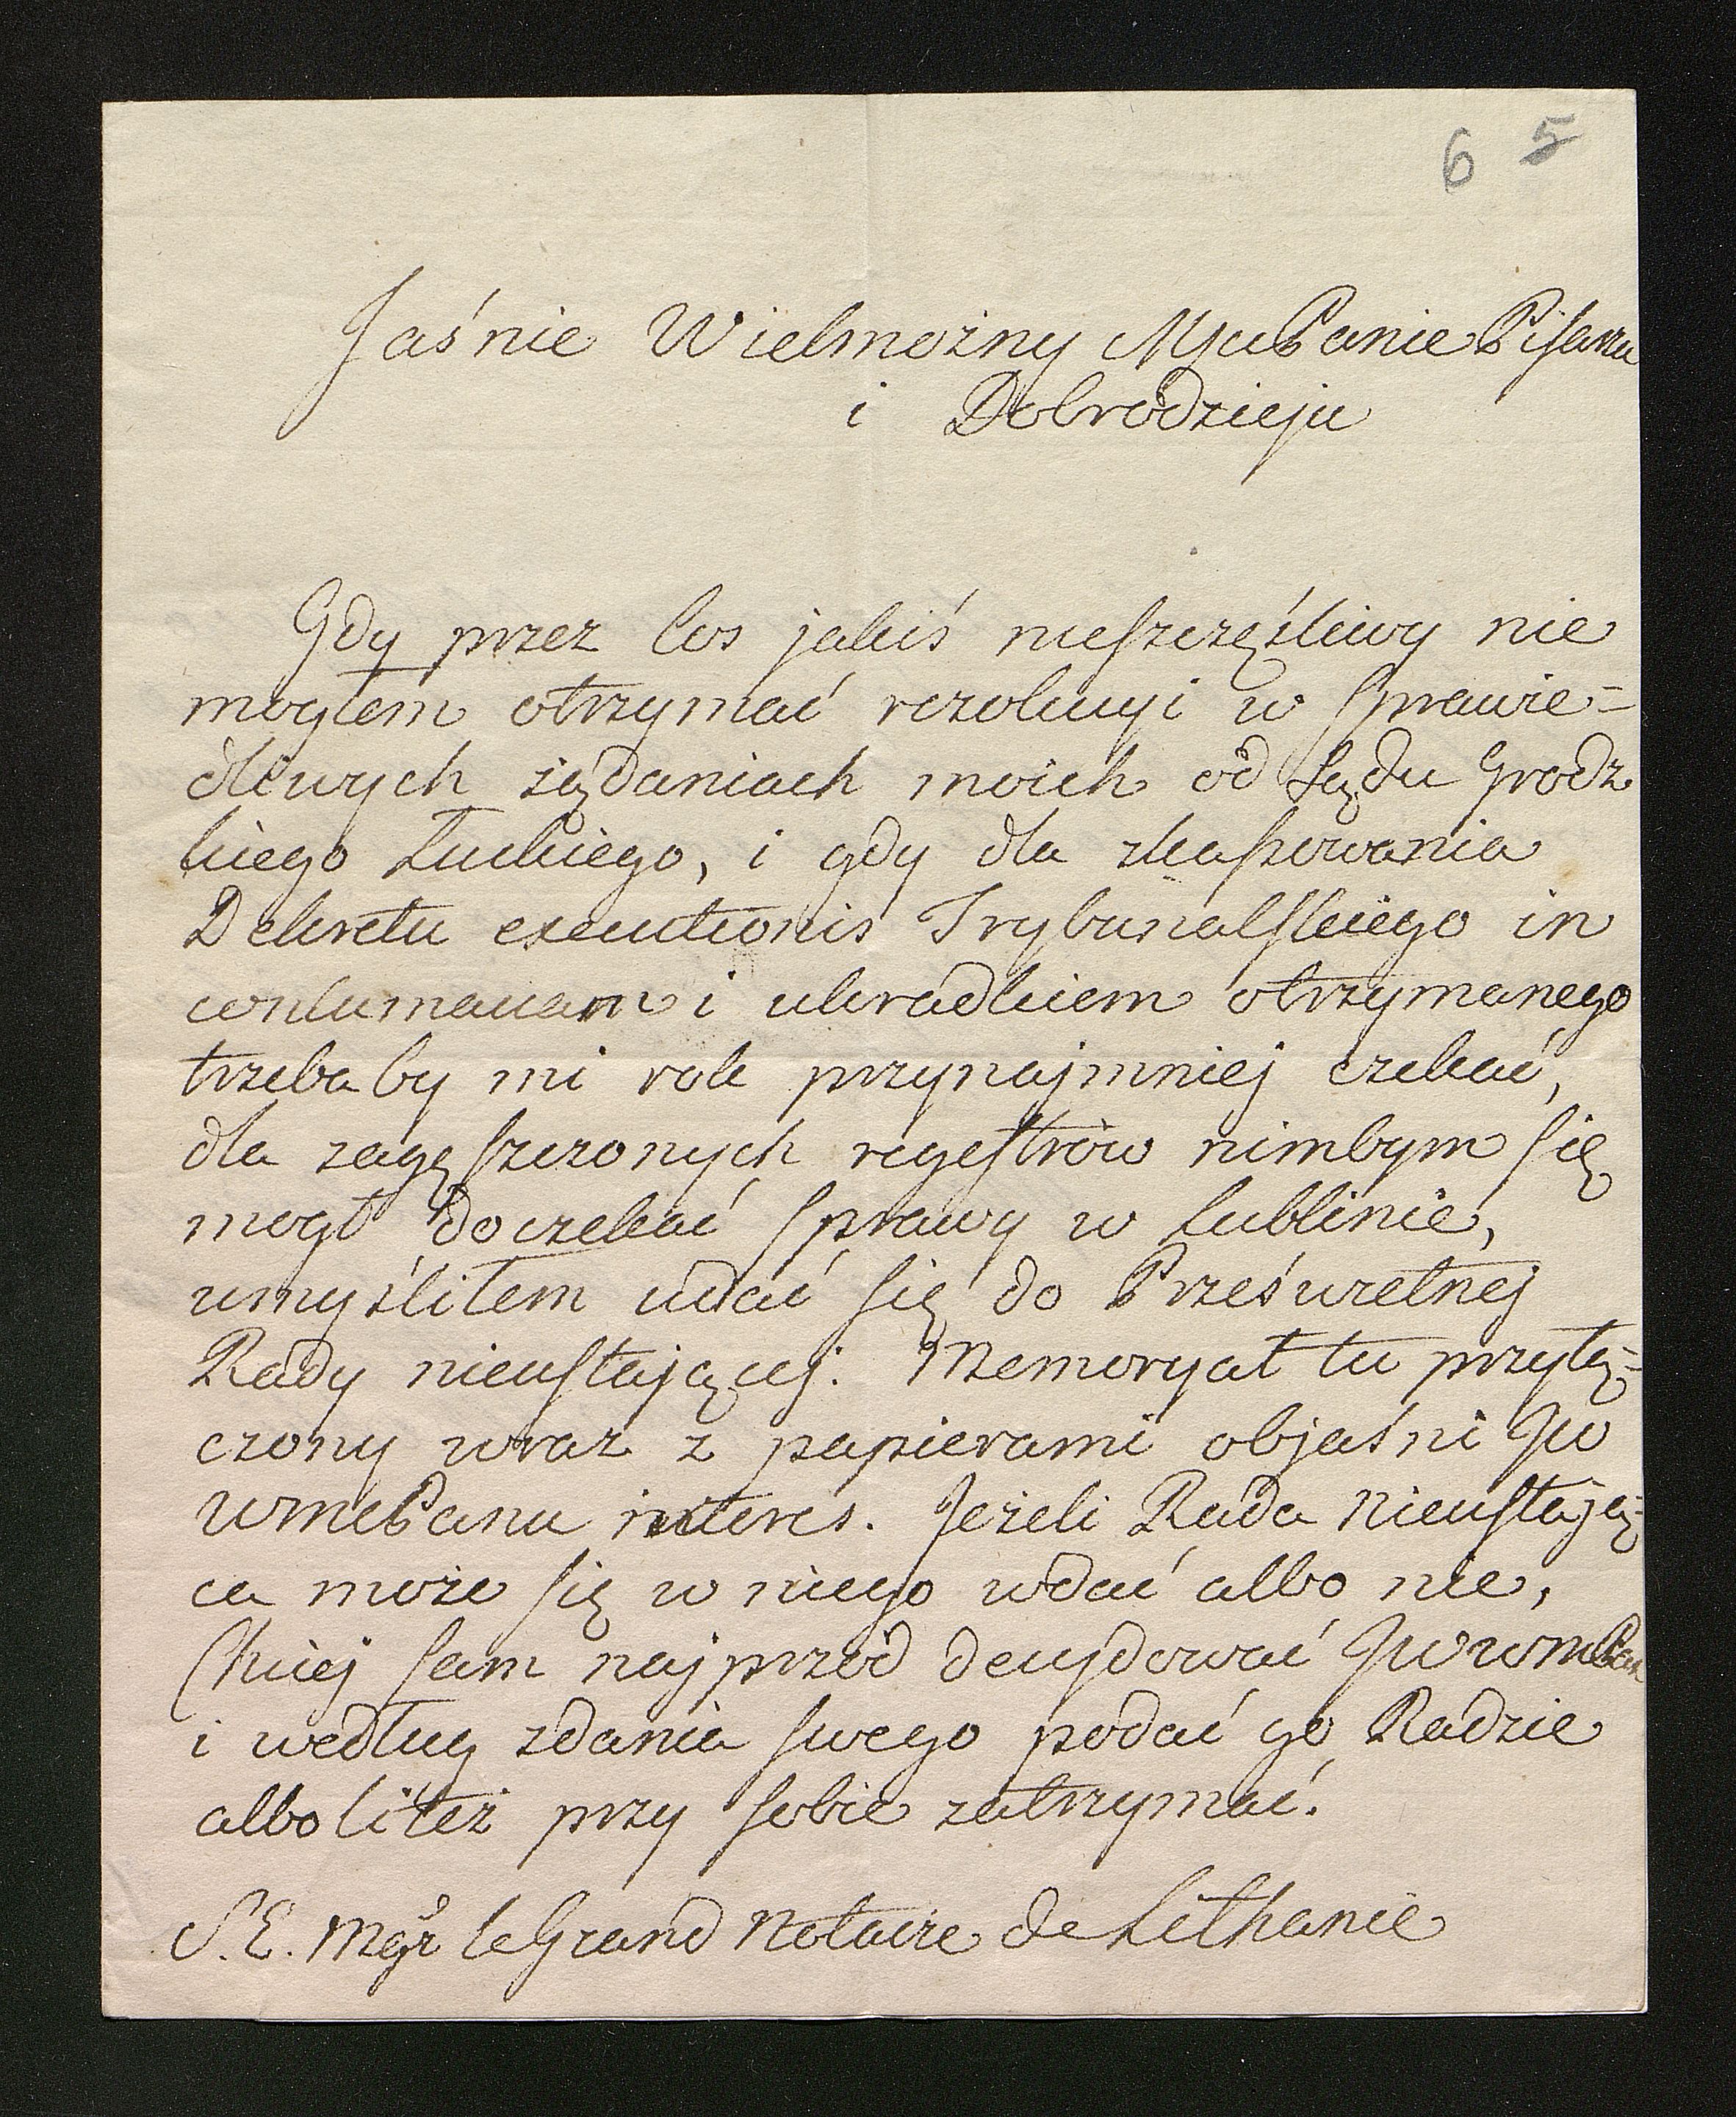 6 5
Jaśnie Wielmożny MsuPanie Pisarzu
i Dobrodzieju
Gdy przez los jakiś nieszczęśliwy nie
mogłem otrzymać rezolucyi w sprawie=
dliwych żądaniach moich od Sądu Grodz
kiego Łuckiego, i gdy dla skassowania
Dekretu executionis Trybunalskiego in
contumaciam i ukradkiem otrzymanego
trzeba by mi rok przynajmniej czekać,
dla zagęszczonych regestrów nimbym się
mogł doczekać sprawy w Lublinie,
umyśliłem udać się do Prześwietnej
Rady nieustającej. Memoryał tu przyłą=
czony wraz z papierami objaśni JW
WmcPanu interes. Jeżeli Rada Nieustają=
ca może się w niego wdać albo nie,
Chciej sam najprzód decydować JWWmcPan
i według zdania swego podać go Radzie
albo li też przy sobie zatrzymać.
S. E. Mgr le Grand Notaire de Lithanie